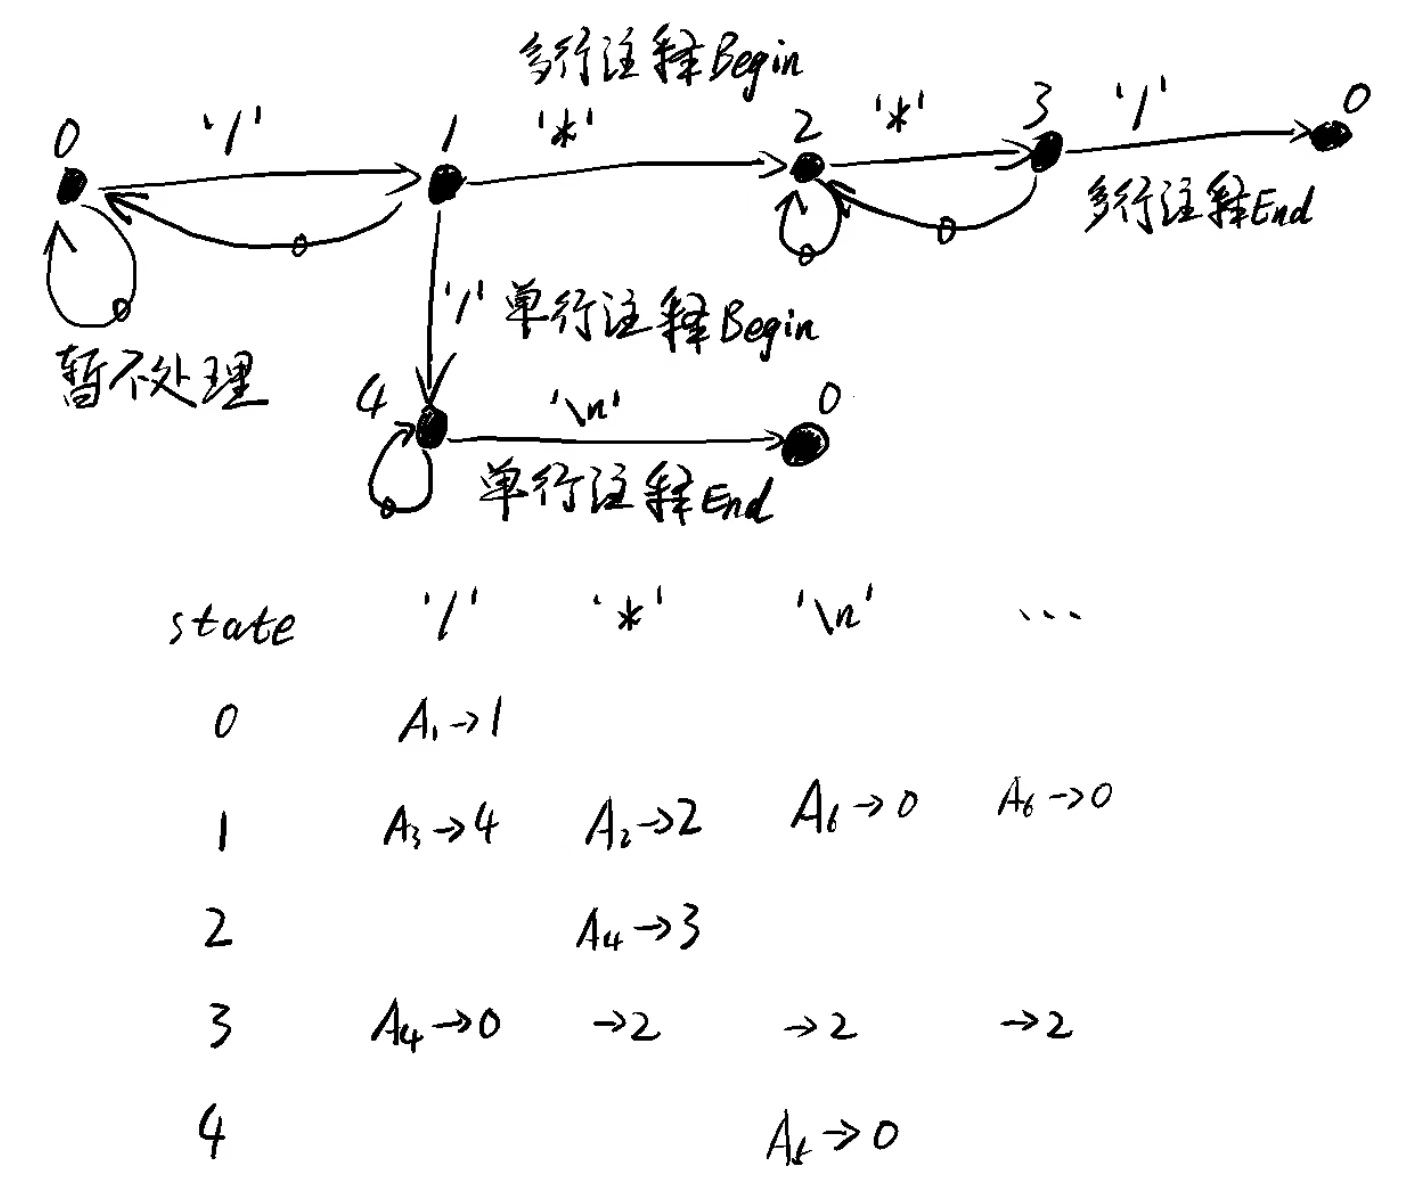 多行注释Begin
0 '/' 1 '*' 2 '*' 3 '/' 0
0 0 0 多行注释End
0 '/' 单行注释Begin
暂不处理 4 '\n' 0
0 单行注释End
state '/' '*' '\n' ...
0 A₁→1
1 A₃→4 A₂→2 A₆→0 A₆→0
2 A₄→3
3 A₄→0 →2 →2 →2
4 A₅→0